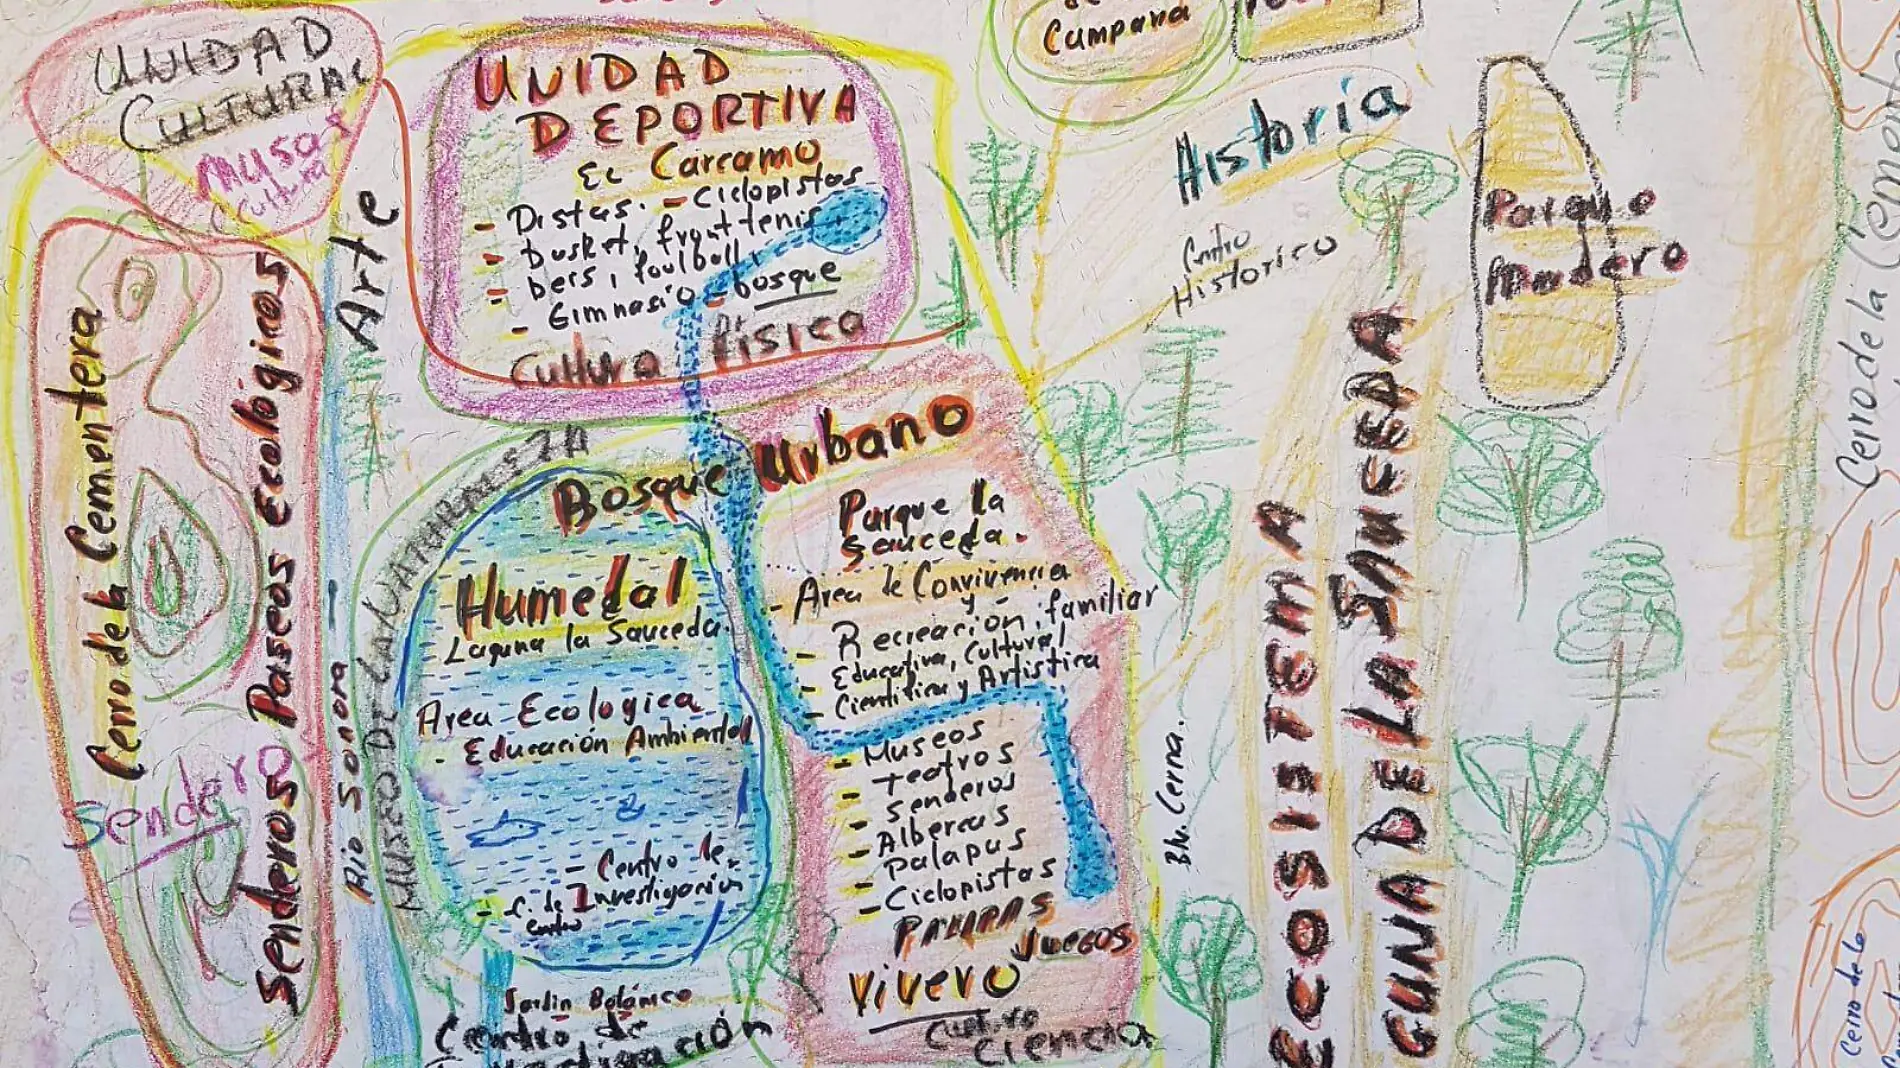 UNIDAD
CULTURAL
MUSAS
Cultura
UNIDAD
DEPORTIVA
EL Carcamo
- Pistas. - Ciclopistas
- basket, fronttenis
- beis, foolball,
- Gimnasio - bosque
Cultura Física
Campana
Historia
Centro
Historico
Parque
Madero
Cerro de la Cementera
Cerro de la Cementera
Senderos Paseos Ecológicos
Sendero
Arte
Rio Sonora
MUSEO DE LA NATURALEZA
Bosque Urbano
Humedal
- Laguna la Sauceda.
Area Ecologica
- Educación Ambiental
- Centro de
- C. de Investigación
Jardin Botánico
Centro de
Investigación
Parque la
Sauceda.
- Area de Convivencia
y
- Recreación, familiar
- Educativa, Cultural
- Cientifica y Artistica
- Museos
- teatros
- senderos
- Albercas
- Palapas
- Ciclopistas
PALAPAS
JUEGOS
Vivero
Cultivo
Ciencia
Blv. Cerna.
ECOSISTEMA
GUNA DE LA SAUCEDA
Cerro de la